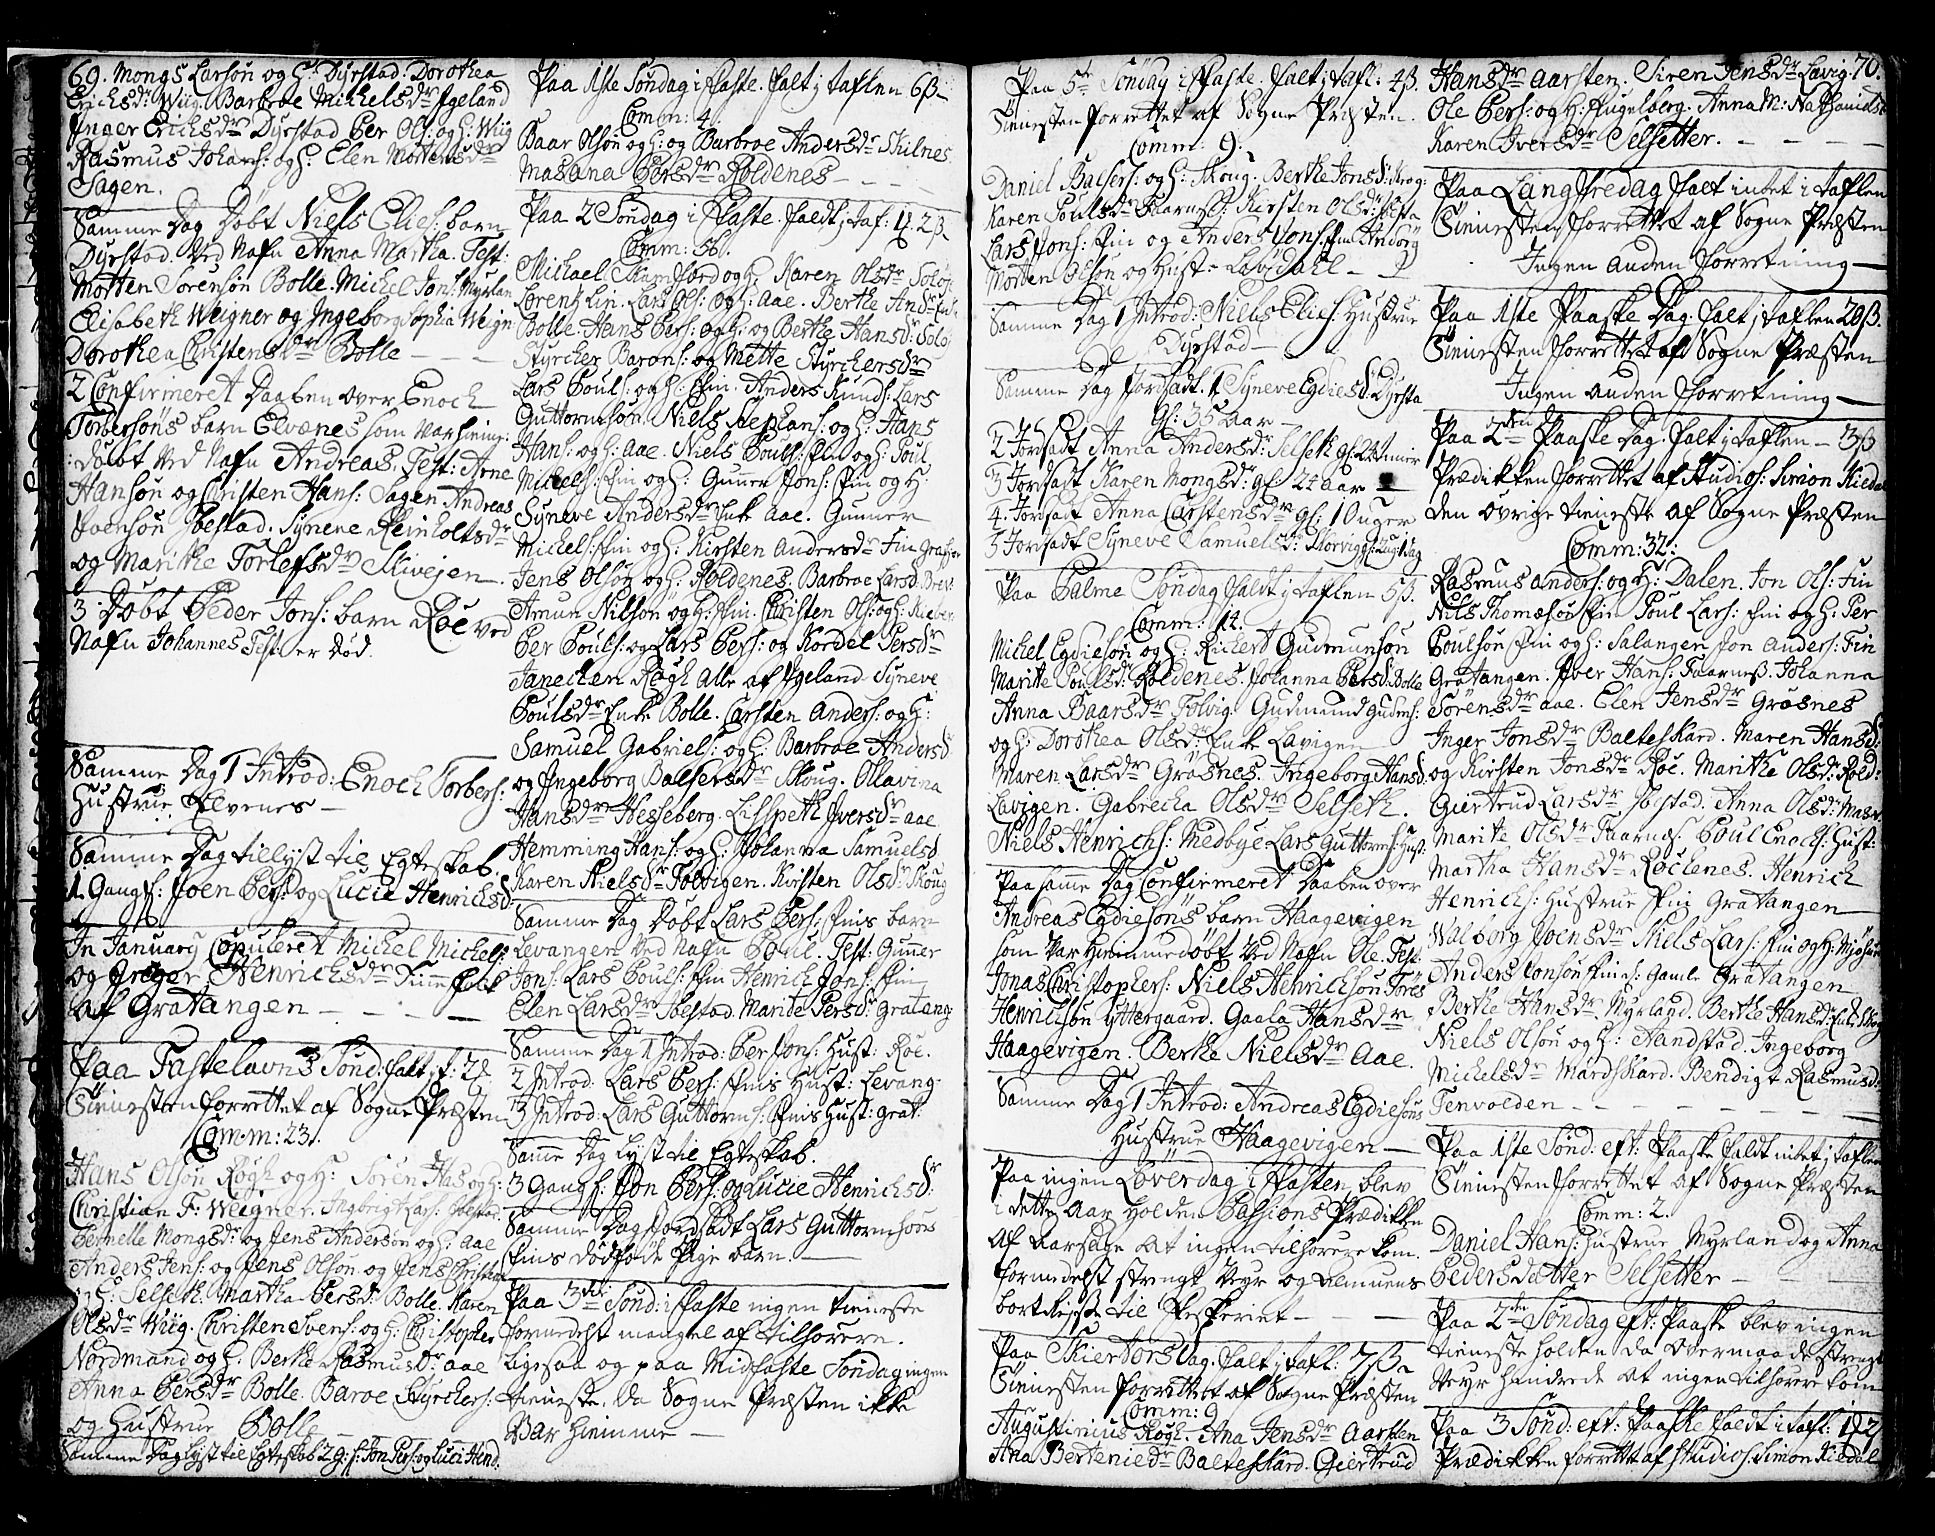 69. Mongs Larsøn og H: Dyrstad. Dorothea
Erichsdr Wiig. Barbroe Michelsdr Igeland
Inger Erichsdr Dyrstad Per Ols: og H: Wiig
Rasmus Johans: og H: Elen Mortensdr
Sagen.
Samme Dag Døbt Niels Elies: barn
Dyrstad. Ved Nafn Anna Martha. Test:
Morten Sørensøn Bolle. Michel Jons: Myrlan
Elisabeth Weigner og Ingeborg Sophia Weign
Dorothea Christensdr Bolle
2 Confirmeret Daaben over Enoch
Torbersøns barn Elvænes som var hiemme
døbt ved Nafn Andreas. Test: Arne
Hansøn og Christen Hans: Sagen Andreas
Joensøn Ibestad. Syneve Reinholtsdr
og Marithe Torlefsdr Skivejen.
3 Døbt Peder Jons: barn Røe ved
Nafn Johannes Test: er Død.
Samme Dag 1 Introd: Enoch Torbers:
Hustrue Elvenes
Samme Dag tillyst til Egteskab.
1. Gang f: Joen Pers: og Lucie Henrichsd:
In January Copuleret Michel Michels:
og Greger Henrichsdr Finne folk
af Gratangen
Paa Fastelavns Sønd: falt f: 28
Tienesten forrettet af Sogne Præsten
Comm: 23.
Hans Olsøn Røgh og H: Søren Has og H:
Christian F: Weigner. Ingbrigt Lars: Ibestad.
Pernelle Mongsdr og Jens Andersøn og H: Aae
Anders Jens: og Jens Olsøn og Jens Christen
og H: Selseth. Martha Persdr Bolle. Karen
Olsdr Wiig. Christen Svens: og H: Christopher
Nordmand og H: Berthe Rasmusdr Aae
Anna Persdr Bolle. Baroe Styrchers:
og Hustrue Bolle
Samme Dag lyst til Egteskab 2 G: f: Jon Pers: og Luci Hend:
Paa 1ste Søndag i Faste. falt i taflen 6ß
Comm: 4.
Baar Olsøn og H: og Barbroe Andersdr Skilnes.
Masana Persdr Roldenes
Paa 2 Søndag i Faste. faldt i taf: 1 2ß
Comm: 56.
Michael Skamfærd og H: Karen Olsdr Solo
Lorentz Lin. Lars Ols: og H: Aae. Berthe Andr Enke
Bolle. Hans Pers: og H: og Berthe Hansdr Solo
Styrcher Barons: og Mette Styrchersdr
Lars Pouls: og H: Fin. Anders Knuds: Lars
Guttormsøn. Niels Stephans: og H: Hans
Hans: og H: Aae. Niels Pouls: Fin og H: Poul
Michels: Fin og H: Gunner Jons: Fin og H:
Syneve Andersdr Enke Aae. Gunner
Michels: Fin og H: Kirsten Andersdr Fin
Jens Olsøn og H: Roldenes. Barbroe Larsd.
Amun Nilsøn og H: Fin. Christen Ols: og H:
Per Pouls: og Lars Pers: og Kordel Persdr
Janecken Røgh Alle af Igeland. Syneve
Poulsdr Enke Bolle. Carsten Anders: og H:
Samuel Gabriels: og H: Barbroe Andersd
og Ingeborg Balsersdr Skoug. Ollavina
Hansdr Hesseberg. Lisspeth Iversdr Aae
Hemming Hans: og H: Johanna Samuelsd
Karen Nielsdr Tolvigen. Kirsten Olsdr Skoug
Samme Dag Døbt Lars Pers: Fins barn
Levangen ved Nafn Poul. Test: Gunner
Jons: Lars Pouls: Fin Henrich Jons: Fin
Elen Larsdr Ibestad. Marite Persd: Gratang:
Samme Dag 1 Introd: Per Jons: Hust: Røe.
2 Introd: Lars Pers: Fins Hust: Levang:
3 Introd: Lars Guttorms: Fins Hust: Grat:
Same Dag lyst til Egteskab.
3 Gang f: Jon Pers: og Lucie Henrichsdr:
Samme Dag Jordsadt Lars Guttormsøns
Fins dødføde Pige barn
Paa 3die Sønd: i Faste ingen tieneste
formedelst mangel af tilhørere.
ligesaa og paa Midfaste Søndag ingen
tieneste. Da Sogne Præsten ikke
var hiemme
Paa 5te Søndag i Faste. falt i tafl: 4ß.
Tienesten forrettet af Sogne Præsten.
Comm: 9.
Daniel Balsers: og H: Skoug. Berthe Jonsdr
Karen Poulsdr Faarnes. Kirsten Olsdr
Lars Jons: Fin og Anders Jons: Fin Andørg
Morten Olsøn og Hust: Løvdahl
Samme Dag 1 Introd: Niels Elies: Hustrue
Dyrstad
Samme Dag Jordsadt. 1 Syneve Egdiesd: Dyrsta
Gl: 35 Aar
2 Jordsadt Anna Andersdr Selseth gl: 24 timer
3 Jordsadt Karen Mongsdr gl: 24 aar
4. Jordsadt Anna Carstensdr gl: 1 Uger
5 Jordsadt Syneve Samuelsdr Skorvig gl: 2 ug: 1 dag
Paa Palme Søndag faldt i taflen 5ß.
Comm: 14.
Michel Egdiesøn og H: Richert Gudmunsøn
Maritte Poulsdr Roldenes. Johanna Persd: Bolle
Anna Baarsdr Tolvig. Gudmund Gudm:
og H: Dorothea Olsdr Enke Lavigen
Maren Larsdr Grøsnes. Ingeborg Hansd.
Lavigen. Gabrecha Olsdr Selseth.
Niels Henrichs: Medbye Lars Guttorms: Hust:
Paa same Dag Confirmeret Daaben over
Andreas Egdiesøns barn Haagevigen
som var hiemmedøbt ved Nafn Ole. Test:
Jonas Christophers: Niels Henrichsøn Tøres
Henrichsøn Yttergaard. Gaala Hansdr
Haagevigen. Berthe Nielsdr Aae.
Samme Dag 1 Introd: Andreas Egdiesøns
Hustrue Haagevigen
Paa ingen Løverdag i Fasten blev
i dette Aar holden Passions Prædikken
af Aarsage at ingen tilhørere kom.
formedelst strengt Veyr og Almuens
bortReyse til Fiskeriet
Paa Skiertorsdag. falt i tafl: 7ß
Tienesten forrettet af Sogne Præsten
Comm: 9
Augustinius Røgh. Ana Jensdr Aarsten
Ana Berteniedr Balteskard. Giertrud
Hansdr Aarsten. Siren Jensdr Lavig. 70.
Ole Pers: og H: Fugelberg. Anna M: Nathanielsd
Karen Iversdr Selsetter.
Paa Lang fredag falt intet i taflen
Tienesten forrettet af Sogne Præsten
Ingen anden forretning
Paa 1ste Paaske Dag. falt i taflen 20ß.
Tienesten forrettet af Sogne Præsten
Ingen anden forretning
Paa 2den Paaske Dag. falt i taflen 3ß
Prædikken forrettet af Studios: Simon Kieda
den øvrige tieneste af Sogne Præsten
Comm: 32.
Rasmus Anders: og H: Dalen. Jon Ols: Fin
Nils Thomæsøn Fin Poul Lars: Fin og H: Per
Poulsøn Fin og H: Salangen Jon Anders: Fin
Gratangen. Iver Hans: Faarnes. Johanna
Sørensdr Aae. Elen Jensdr Grøsnes
Inger Jonsdr Balteskard. Maren Hansd:
og Kirsten Jonsdr Røe. Marithe Olsdr Rold:
Giertrud Larsdr Ibestad. Anna Olsdr
Marite Olsdr Faarnæs. Poul Enochs: Hust:
Martha Hansdr Røchenes. Henrich
Henrichs: Hustrue Fin Gratangen
Walborg Joensdr Niels Lars: Fin og H:
Anders Jonsøn Fin H: Gamle Gratangen
Berthe Hansdr Myrland. Berthe Hansd: Enke Skog
Niels Olsøn og H: Aandstad. Ingeborg
Michelsdr Mårdskard. Bendigt Rasmusd:
Tenvolden
Paa 1ste Sønd: eft: Paaske faldt intet i taflen
Tienesten forrettet af Sogne Præsten
Comm: 2.
Daniel Hans: Hustrue Myrland og Anna
Pedersdatter Selsetter
Paa 2den Søndag eft: Paaske blev ingen
tieneste holden da overmaade strengt
Veyr hindrede at ingen tilhører kom
Paa 3 Sønd: eft: Paaske faldt i tafl:
Prædikken forrettet af Studios: Simon Kiedal